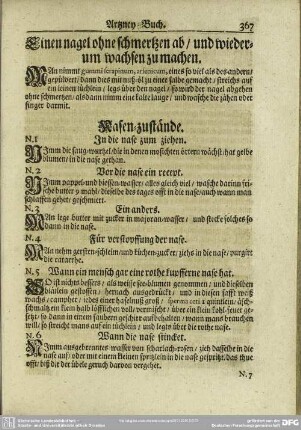 Artzney-Buch. 367
Einen nagel ohne schmertzen ab / und wieder-
um wachsen zu machen.
MAn nimmt gummi serapinum, arsenicum, eines so viel als des andern/
gepülvert / dann dies mit nuß-öl zu einer salbe gemacht / streichs auf
ein leinen tüchlein / legs über den nagel / so wird der nagel abgehen
ohne schmertzen / alsdann nimm eine kalte lauge / und wasche die zähen oder
finger darmit.
Nasen-zustände.
N.1 In die nase zum ziehen.
NImm die wurtzel / die in denen wüsten örtern wächst / hat gelbe
blumen / in die nase gethan.
N.2 Vor die nase ein recept.
NImm pappel- und wasser / alles gleich viel / wasche darinn
butter 9 mahl / dieselbe des tages offt in die nase / auch wann man
schlaffen gehet / geschmiert.
N.3 Ein anders.
MAn lege butter mit zucker in majoran-wasser / und stecke solches so
dann in die nase.
N.4 Für verstopffung der nase.
MAn nehm gersten-schleim / und zucker; ziehs in die nase / purgirt
die catarrhe.
N.5 Wann ein mensch gar eine rothe kupfferne nase hat.
SO ist nichts bessers / als weisse see-blumen genommen / und dieselben
blatlein gestossen / hernach ausgedruckt / und in diesen safft weiß
wachs / campher / jedes einer haselnuß groß / 1 quintlein /
schmaltz ein klein halb löfflich voll / vermischt / und über ein klein kohl-feuer ge-
setzt / so dann in einem saubern geschirr aufbehalten / wann mans brauchen
will / so streicht mans auf ein tüchlein / und legts über die rothe nase.
N.6 Wann die nase stincket.
NImm ausgebrenntes wasser von scharlach-rosen / zieh dasselbe in die
nase auf / oder mit einem kleinen spritzlein in die nase gespritzt / das thue
offt / biß dir der üble geruch darvon vergehet.
N.7